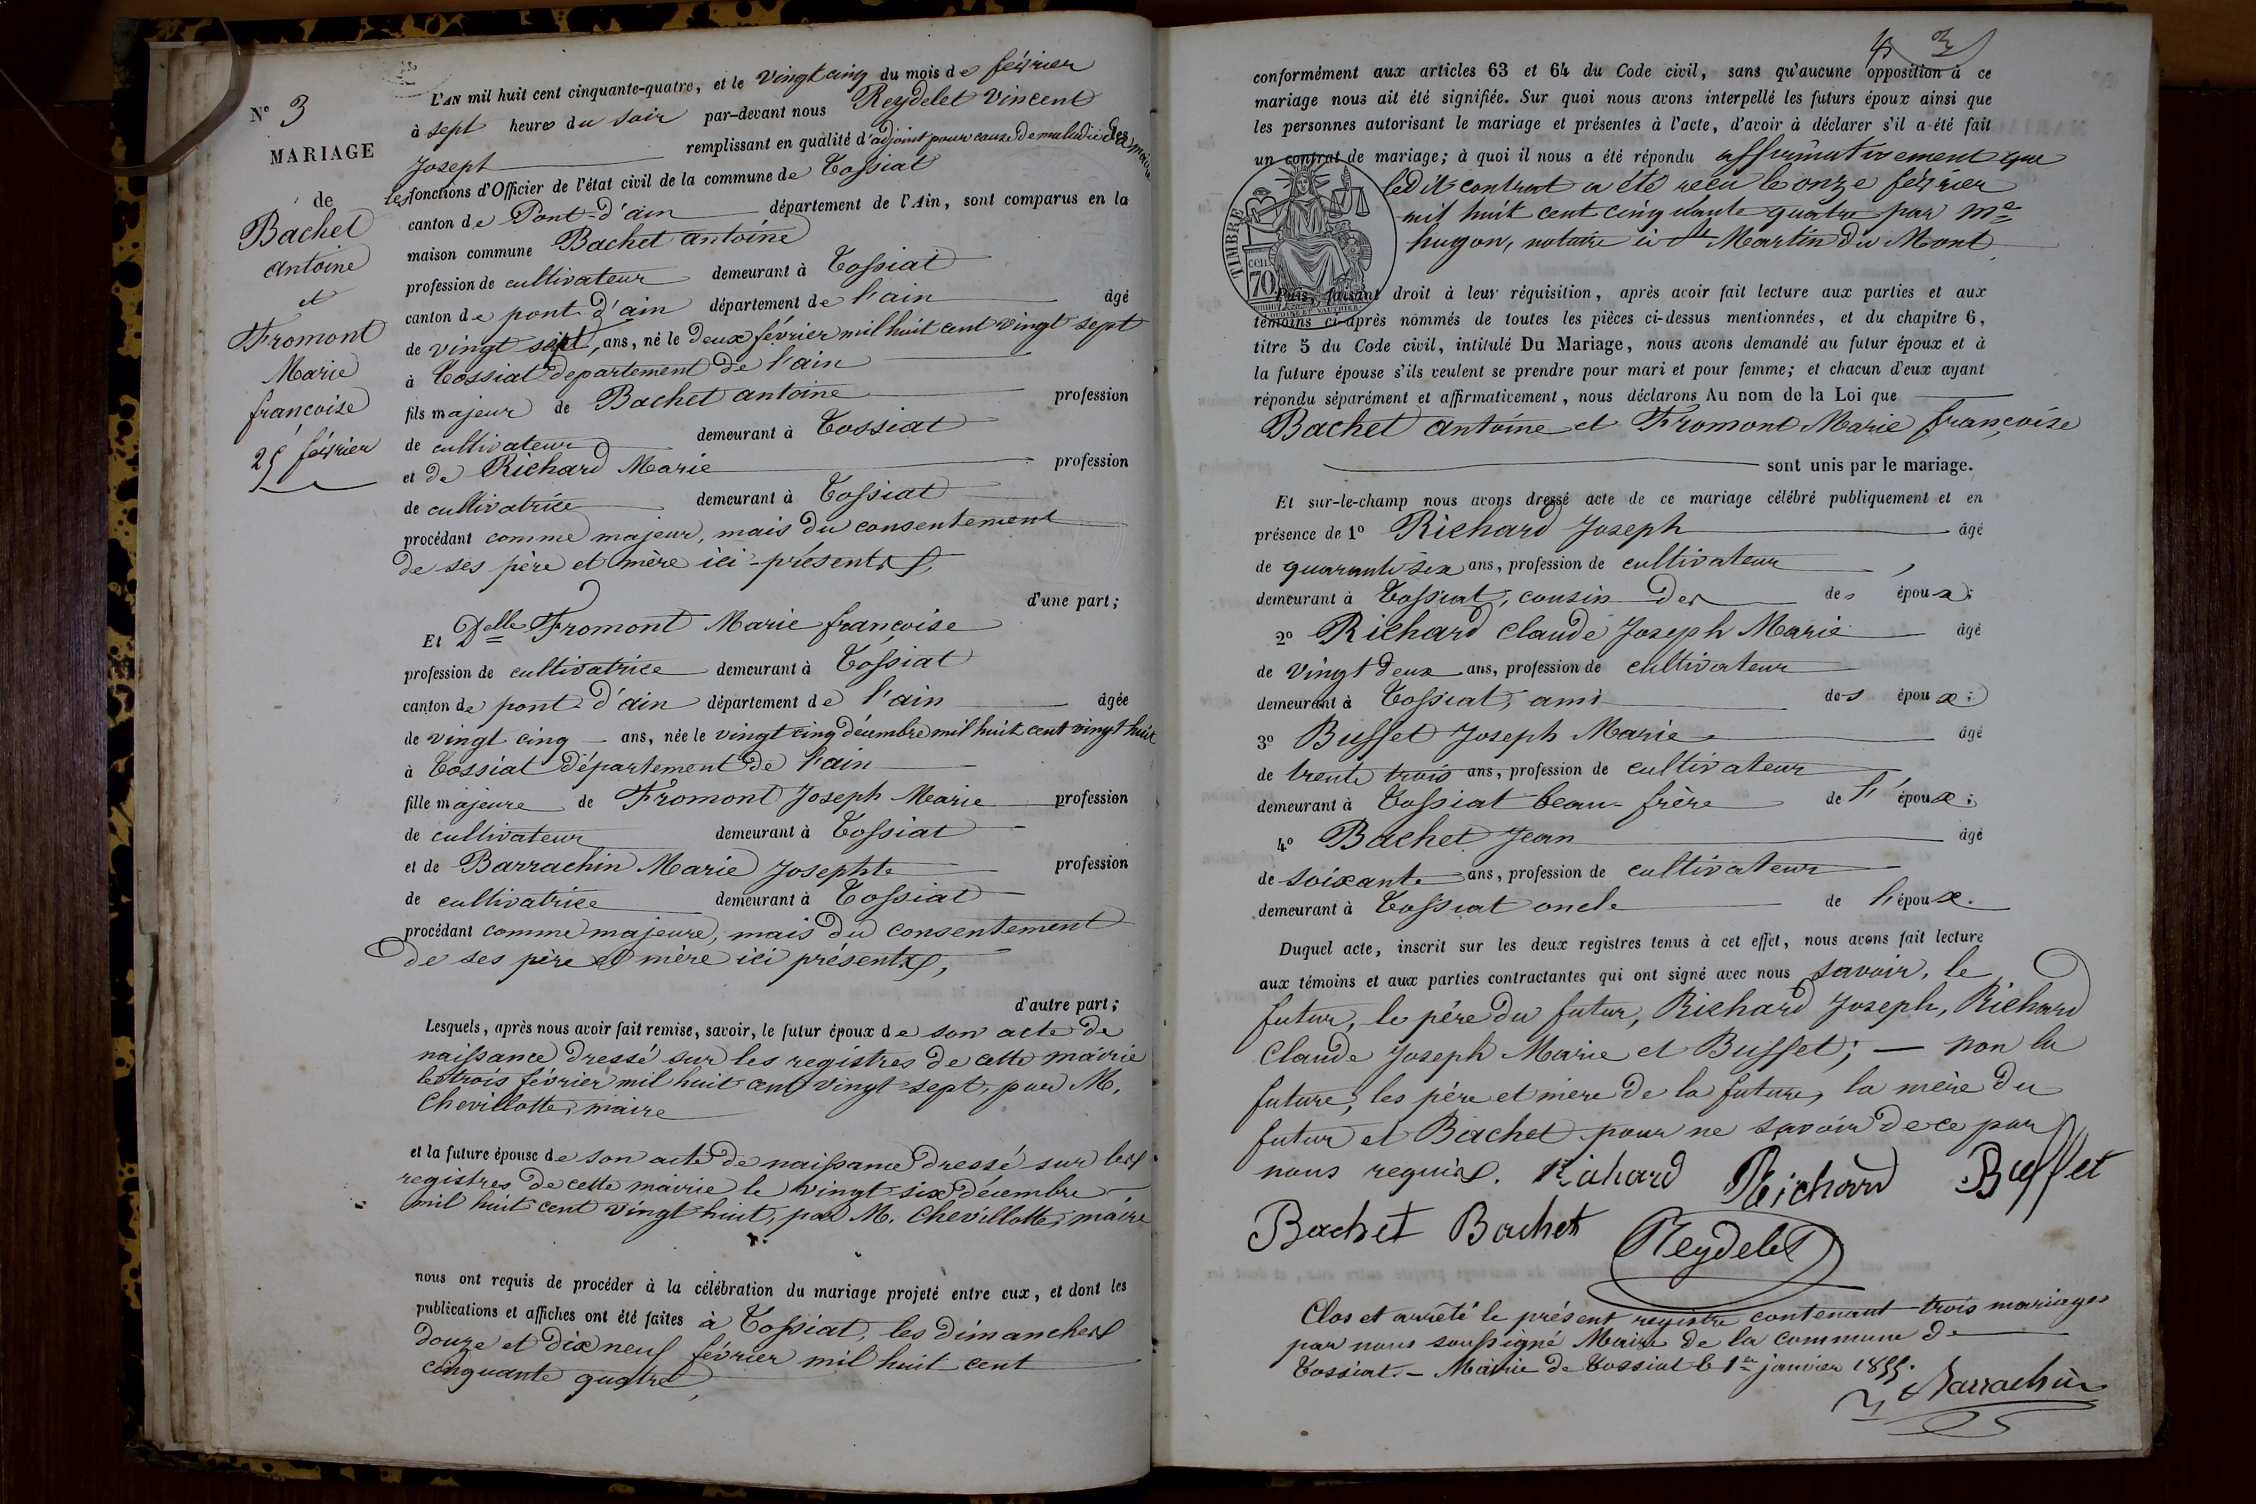 N° 3
MARIAGE
de
Bachet
antoine
et
Fromont
Marie
françoise
25 février
L'AN mil huit cent cinquante-quatre, et le vingt cinq du mois de février
à sept heures du soir par-devant nous Reydelet Vincent
Joseph remplissant en qualité d'adjoint pour cause de maladie du maire
les fonctions d'Officier de l'état civil de la commune de Tossiat
canton de Pont-d'ain département de l'Ain, sont comparus en la
maison commune Bachet antoine
profession de cultivateur demeurant à Tossiat
canton de pont-d'ain département de l'ain âgé
de vingt sept ans, né le deux février mil huit cent vingt sept
à Tossiat département de l'ain
fils majeur de Bachet antoine profession
de cultivateur demeurant à Tossiat
et de Richard Marie profession
de cultivatrice demeurant à Tossiat
procédant comme majeur, mais du consentement
de ses père et mère ici-présents,
d'une part;
Et Delle Fromont Marie françoise
profession de cultivatrice demeurant à Tossiat
canton de pont-d'ain département de l'ain âgée
de vingt cinq ans, née le vingt cinq décembre mil huit cent vingt huit
à Tossiat département de l'ain
fille majeure de Fromont Joseph Marie profession
de cultivateur demeurant à Tossiat
et de Barrachin Marie Josephte profession
de cultivatrice demeurant à Tossiat
procédant comme majeure, mais du consentement
de ses père et mère ici présents,
d'autre part;
Lesquels, après nous avoir fait remise, savoir, le futur époux de son acte de
naissance dressé sur les registres de cette mairie
le trois février mil huit cent vingt-sept, par M.
Chevillotte, maire
et la future épouse de son acte de naissance dressé sur les
registres de cette mairie le vingt six décembre
mil huit cent vingt huit, par M. Chevillotte, maire
nous ont requis de procéder à la célébration du mariage projeté entre eux, et dont les
publications et affiches ont été faites à Tossiat, les dimanches
douze et dix neuf février mil huit cent
cinquante quatre,
3
conformément aux articles 63 et 64 du Code civil, sans qu'aucune opposition à ce
mariage nous ait été signifiée. Sur quoi nous avons interpellé les futurs époux ainsi que
les personnes autorisant le mariage et présentes à l'acte, d'avoir à déclarer s'il a été fait
un contrat de mariage; à quoi il nous a été répondu affirmativement que
ledit contrat a été recu le onze février
mil huit cent cinquante quatre par Me
hugon, notaire à St Martin du Mont
TIMBRE
cen.
70
Puis, faisant droit à leur réquisition, après avoir fait lecture aux parties et aux
témoins ci-après nommés de toutes les pièces ci-dessus mentionnées, et du chapitre 6,
titre 5 du Code civil, intitulé Du Mariage, nous avons demandé au futur époux et à
la future épouse s'ils veulent se prendre pour mari et pour femme; et chacun d'eux ayant
répondu séparément et affirmativement, nous déclarons Au nom de la Loi que
Bachet antoine et Fromont Marie françoise
sont unis par le mariage.
Et sur-le-champ nous avons dressé acte de ce mariage célébré publiquement et en
présence de 1° Richard Joseph âgé
de quarante six ans, profession de cultivateur
demeurant à Tossiat, cousin des des époux;
2° Richard claude Joseph Marie âgé
de vingt deux ans, profession de cultivateur
demeurant à Tossiat, ami des époux;
3° Buffet Joseph Marie âgé
de trente trois ans, profession de cultivateur
demeurant à Tossiat beau-frère de l'époux;
4° Bachet Jean âgé
de soixante ans, profession de cultivateur
demeurant à Tossiat oncle de l'époux.
Duquel acte, inscrit sur les deux registres tenus à cet effet, nous avons fait lecture
aux témoins et aux parties contractantes qui ont signé avec nous savoir, le
futur, le père du futur, Richard Joseph, Richard
Claude Joseph Marie et Buffet; — non la
future, les père et mère de la future, la mère du
futur et Bachet pour ne savoir de ce par
nous requis. Richard Richard Buffet
Bachet Bachet Reydelet
Clos et arrêté le présent registre contenant trois mariages
par nous soussigné Maire de la commune de
Tossiat. — Mairie de Tossiat le 1er janvier 1855.
Barrachin